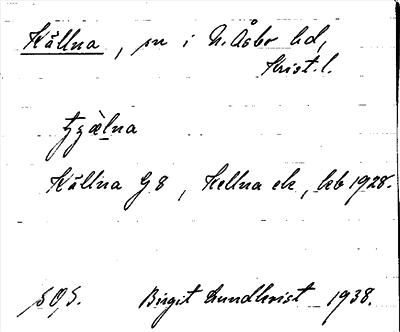 Källna, sn i N. Åsbo hd,
Krist. l.
Källna G8, Kellna ek, kb 1928.
SOS. Birgit Lundkvist 1938.